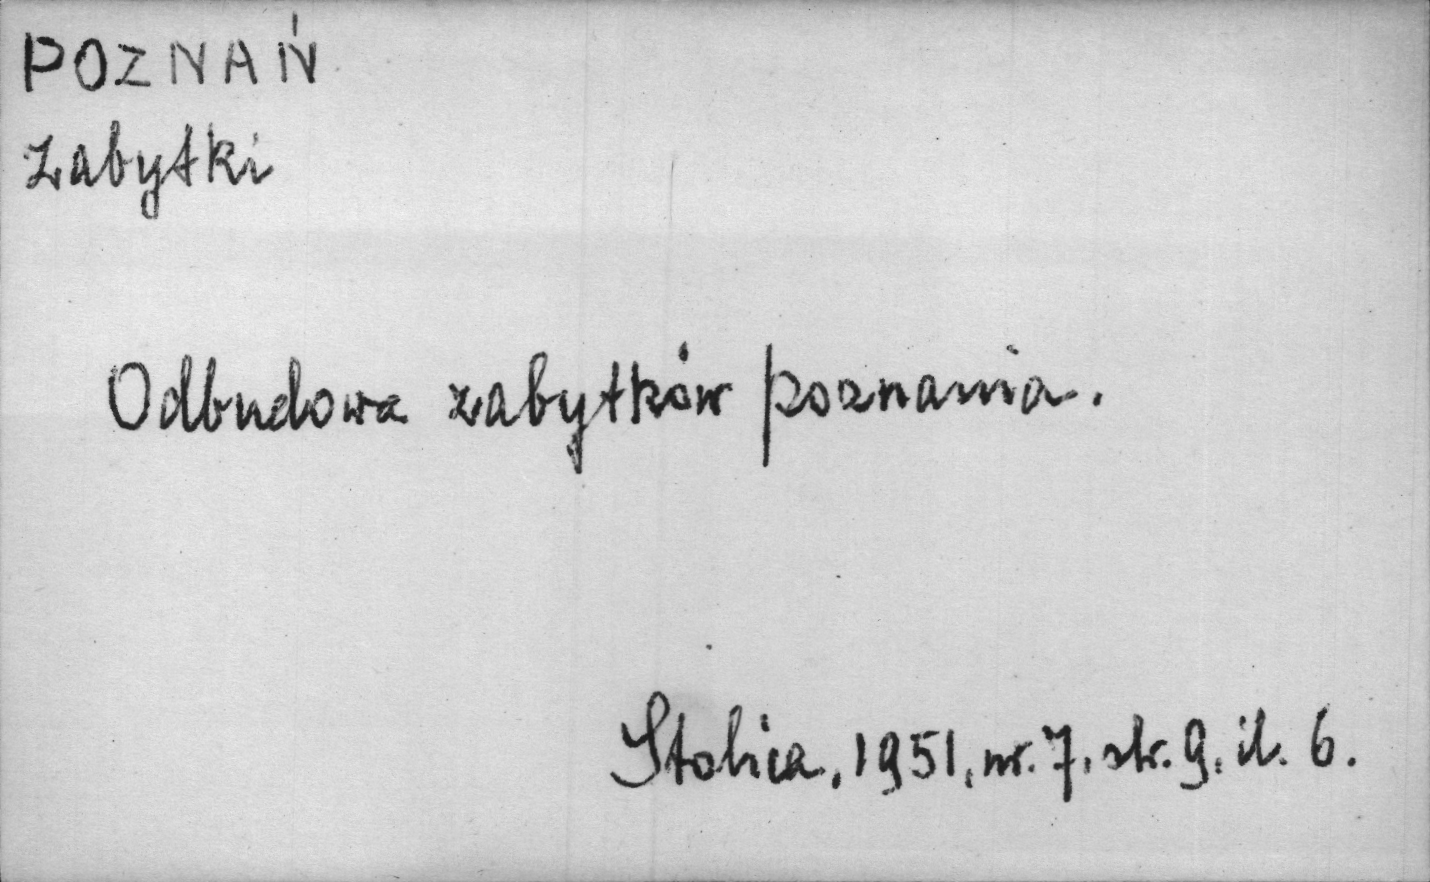 POZNAŃ
zabytki
Odbudowa zabytków poznania.
Stolica, 1951, nr. 7, str. 9, il. 6.